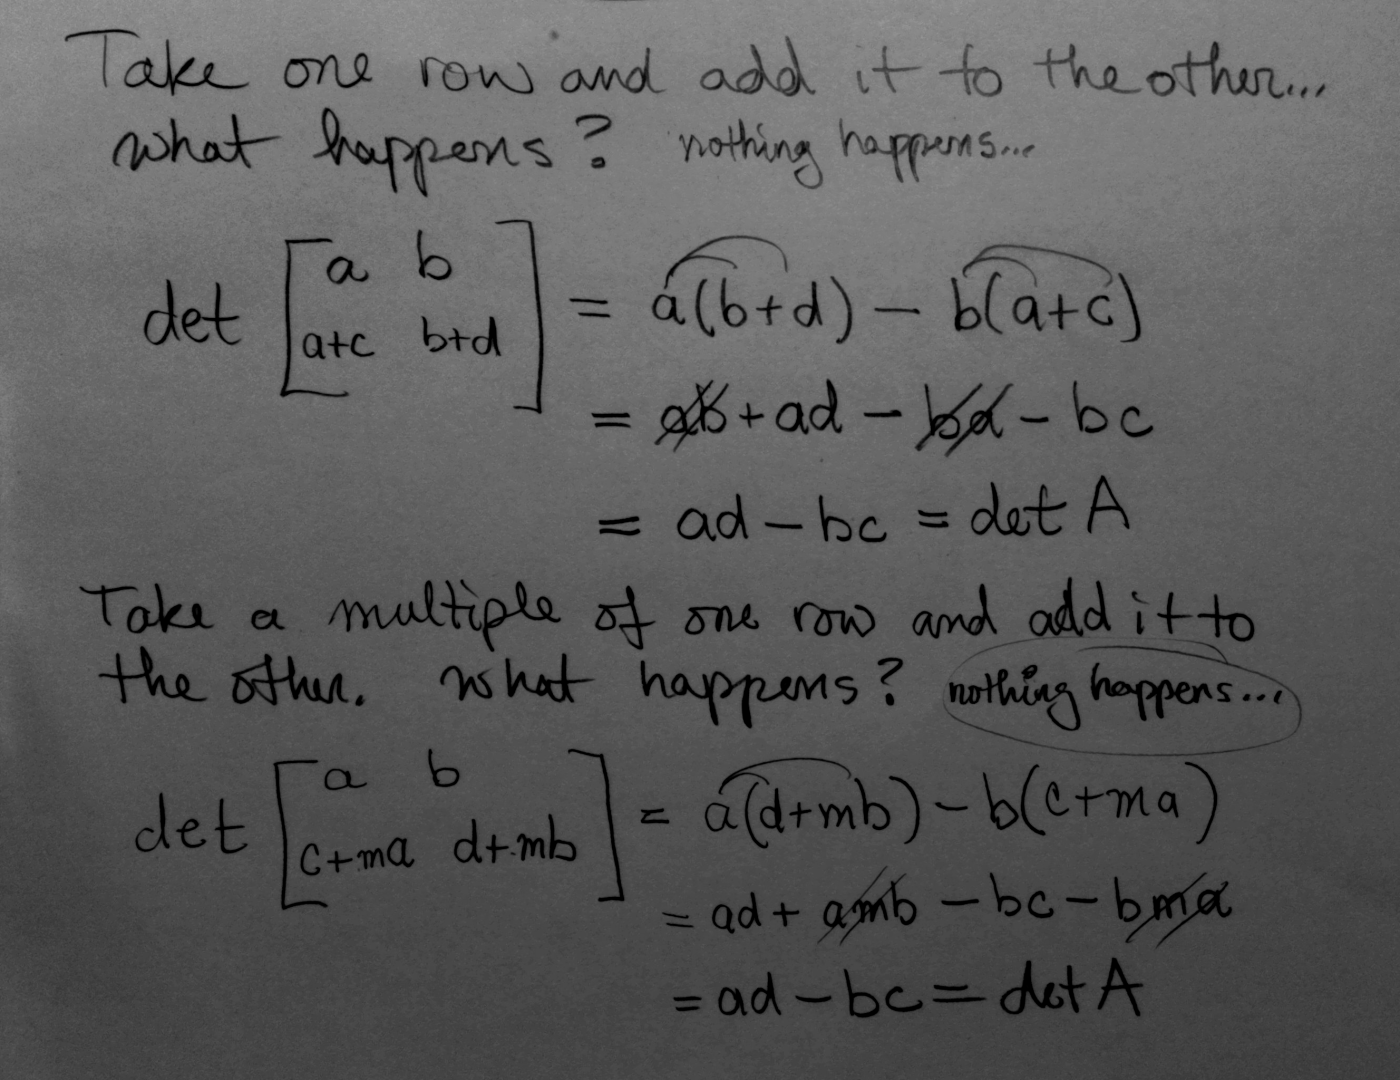 Take one row and add it to the other...
what happens? nothing happens...
det [a b
a+c b+d] = a(b+d) - b(a+c)
= ab + ad - ba - bc
= ad - bc = det A
Take a multiple of one row and add it to
the other. what happens? nothing happens...
det [a b
c+ma d+mb] = a(d+mb) - b(c+ma)
= ad + amb - bc - bma
= ad - bc = det A